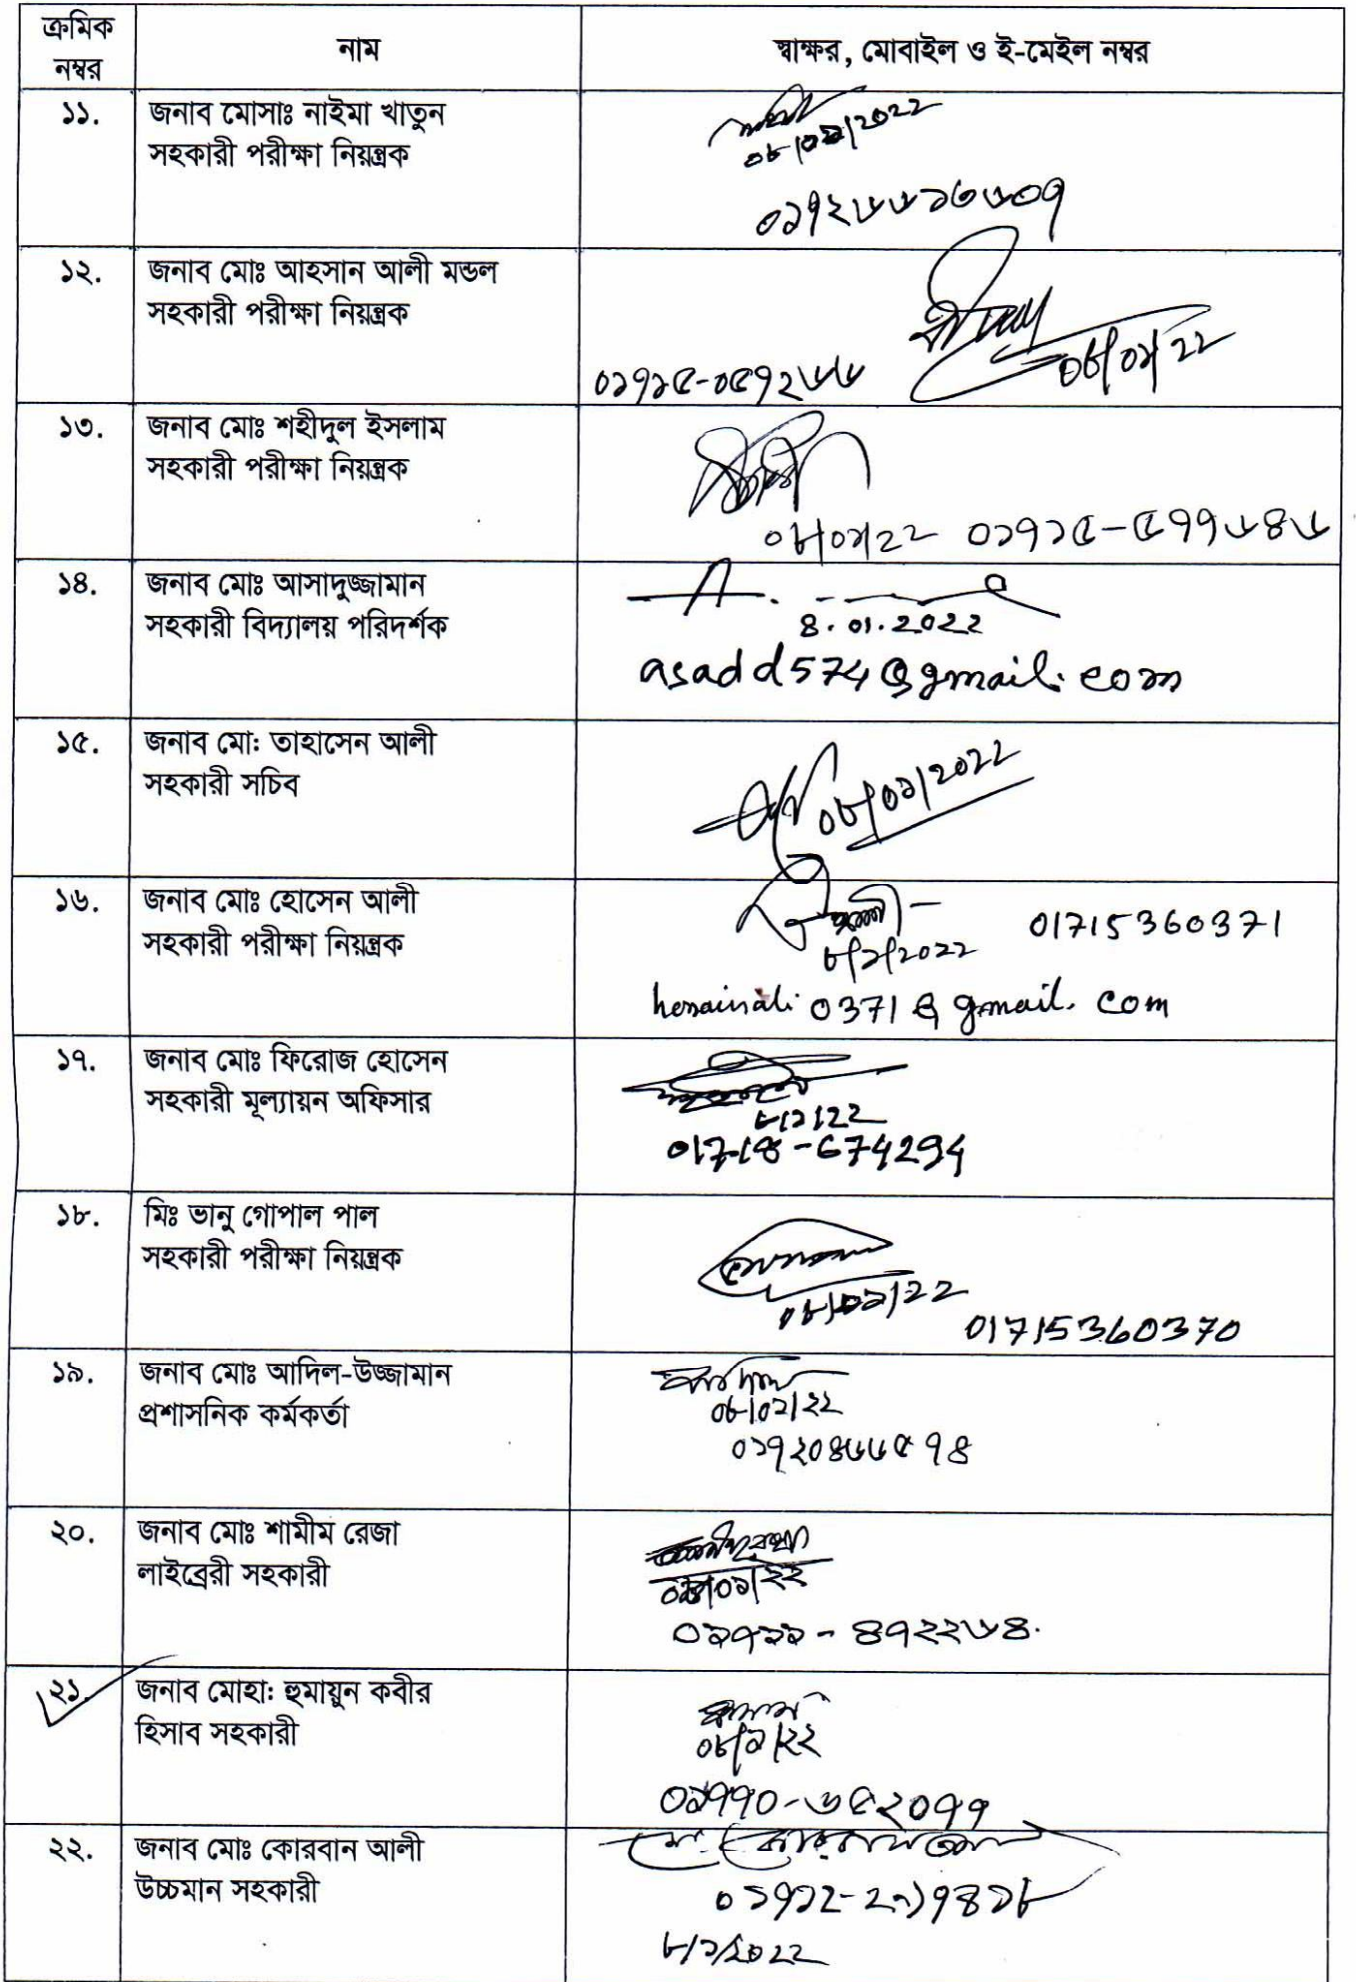 ক্রমিক
নম্বর
নাম
স্বাক্ষর, মোবাইল ও ই-মেইল নম্বর
১১.
জনাব মোসাঃ নাইমা খাতুন
সহকারী পরীক্ষা নিয়ন্ত্রক
০৮/০১/2022
০১৭২৬৬১৩৬০৭
১২.
জনাব মোঃ আহসান আলী মন্ডল
সহকারী পরীক্ষা নিয়ন্ত্রক
০৮/০১/22
০১৭১৫-০৫৭২৬৬
১৩.
জনাব মোঃ শহীদুল ইসলাম
সহকারী পরীক্ষা নিয়ন্ত্রক
০৮/০১/22 ০১৭১৫-৫৭৭৬৪৬
১৪.
জনাব মোঃ আসাদুজ্জামান
সহকারী বিদ্যালয় পরিদর্শক
8.01.2022
asadd574@gmail.com
১৫.
জনাব মো: তাহাসেন আলী
সহকারী সচিব
০৮/০১/2022
১৬.
জনাব মোঃ হোসেন আলী
সহকারী পরীক্ষা নিয়ন্ত্রক
01715360371
৮/১/2022
0371@gmail.com
১৭.
জনাব মোঃ ফিরোজ হোসেন
সহকারী মূল্যায়ন অফিসার
৮/১/22
01718-674294
১৮.
মিঃ ভানু গোপাল পাল
সহকারী পরীক্ষা নিয়ন্ত্রক
০৮/০১/22
01715360370
১৯.
জনাব মোঃ আদিল-উজ্জামান
প্রশাসনিক কর্মকর্তা
০৮/০১/২২
০১৭২০৪৬৬৫৭৪
২০.
জনাব মোঃ শামীম রেজা
লাইব্রেরী সহকারী
০৮/০১/২২
০১৭১১-৪৭২২৬৪.
২১.
জনাব মোহা: হুমায়ুন কবীর
হিসাব সহকারী
০৮/১/২২
০১৭৭০-৬৫২০৭৭
২২.
জনাব মোঃ কোরবান আলী
উচ্চমান সহকারী
৮/১/2022